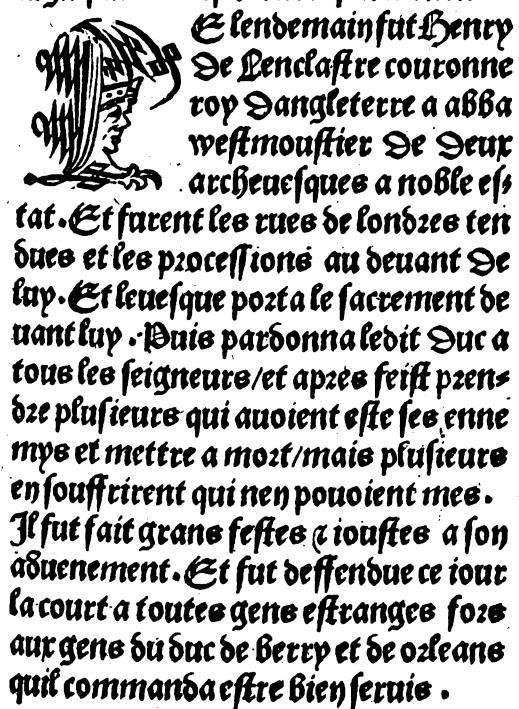 LE lendemain fut Henry
de Lenclastre couronne
roy dangleterre a abba
westmoustier de deux
archeuesques a noble es/
tat. Et furent les rues de londres ten
dues et les processions au deuant de
luy. Et leuesque porta le sacrement de
uant luy. Puis pardonna ledit Duc a
tous les seigneurs/et apres feist pren-
dre plusieurs qui auoient este ses enne
mys et mettre a mort/mais plusieurs
en souffrirent qui nen pouoient mes.
Il fut fait grans festes ⁊ ioustes a son
aduenement. Et fut deffendue ce iour
la court a toutes gens estranges fors
aux gens du duc de Berry et de orleans
quil commanda estre bien seruis.